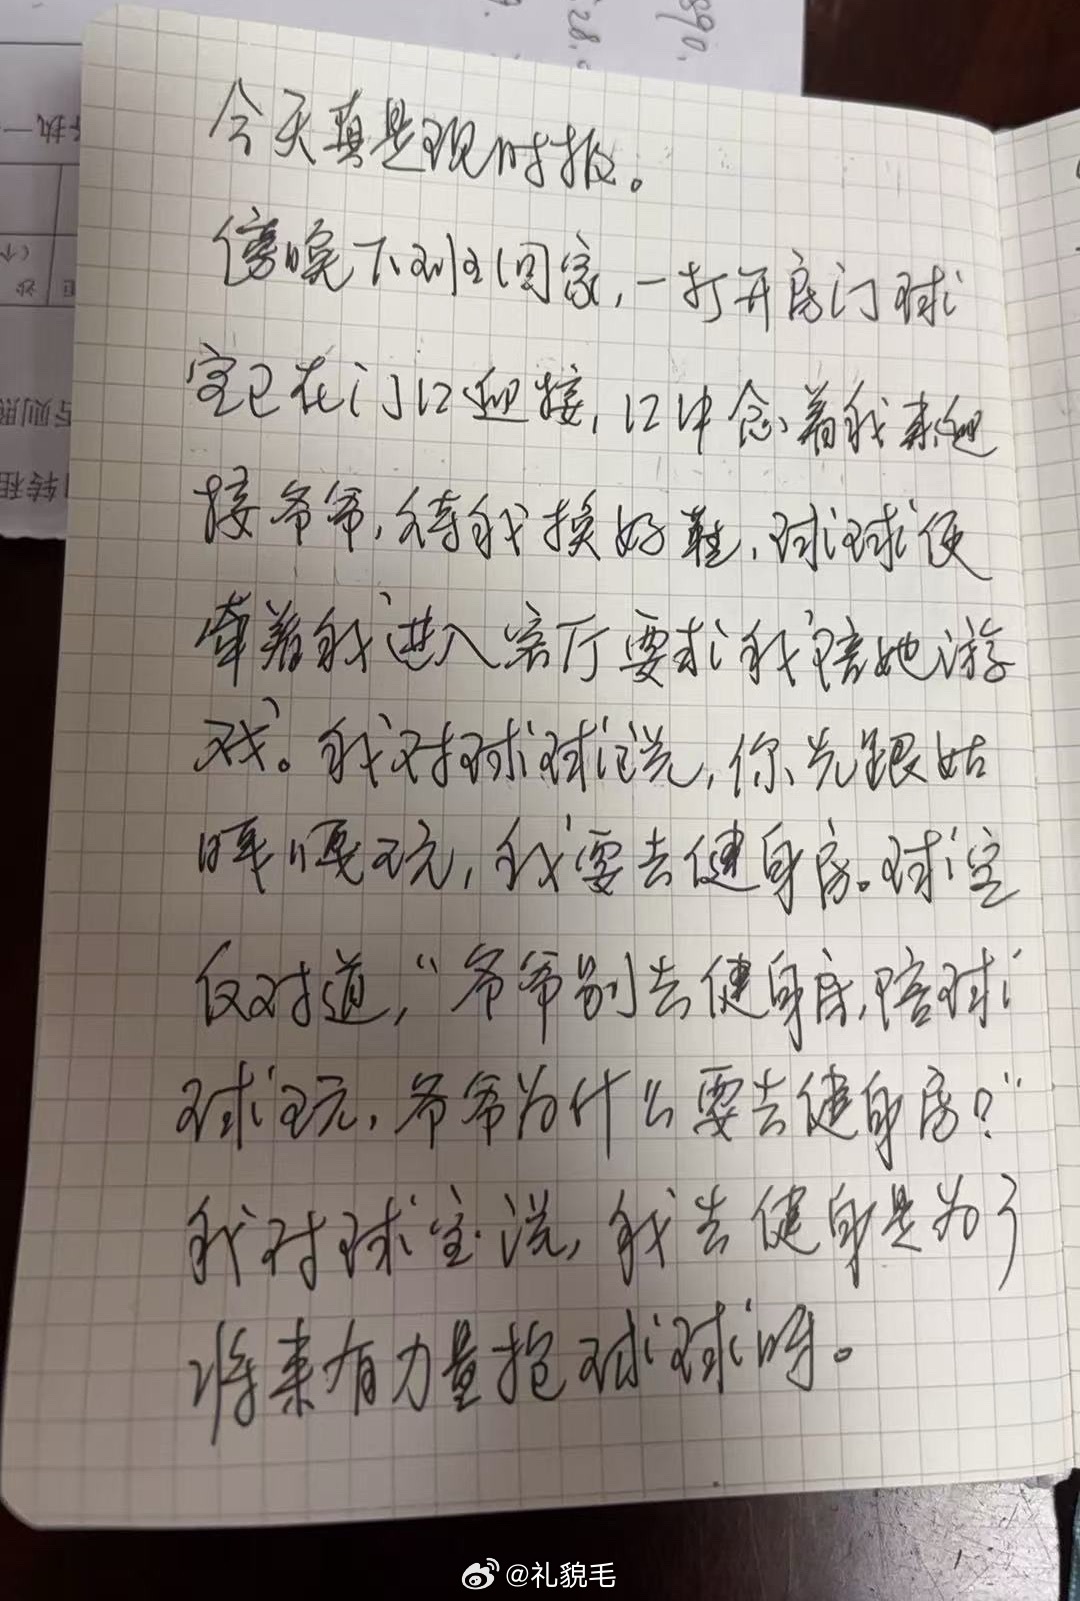 今天真是现时报。
傍晚下班回家,一打开房门球
宝已在门口迎接,口中念着我来迎
接爷爷,待我换好鞋,球球便
牵着我进入客厅要求我陪她游
戏。我对球球说,你先跟姑
嘎嘎玩,我要去健身房。球宝
反对道,“爷爷别去健身房,陪球
球玩,爷爷为什么要去健身房?”
我对球宝说,我去健身是为了
将来有力量抱球球呀。
890.
28.
执一
否则照
转租
@礼貌毛